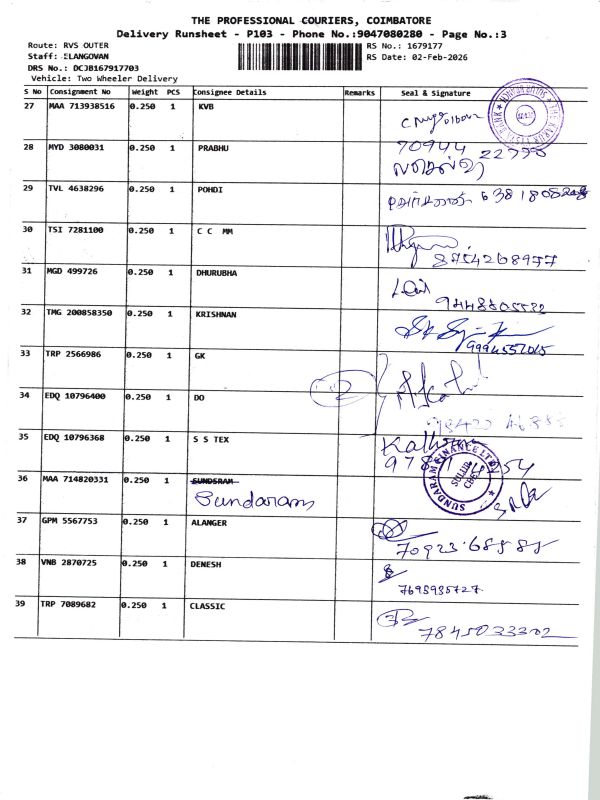 THE PROFESSIONAL COURIERS, COIMBATORE
Delivery Runsheet - P103 - Phone No.:9047080280 - Page No.:3
Route: RVS OUTER
Staff: ELANGOVAN
DRS No.: DCJB167917703
Vehicle: Two Wheeler Delivery
RS No.: 1679177
RS Date: 02-Feb-2026
S No Consignment No Weight PCS Consignee Details Remarks Seal & Signature
27 MAA 713938516 0.250 1 KVB
28 MYD 3080031 0.250 1 PRABHU 70944 22798
29 TVL 4638296 0.250 1 POHDI
30 TSI 7281100 0.250 1 C C MM 8754268977
31 MGD 499726 0.250 1 DHURUBHA
32 TMG 200858350 0.250 1 KRISHNAN
33 TRP 2566986 0.250 1 GK
34 EDQ 10796400 0.250 1 DO
35 EDQ 10796368 0.250 1 S S TEX
36 MAA 714820331 0.250 1 SUNDSRAM
Sundaram
SUNDARAM FINANCE LTD
SULUR
37 GPM 5567753 0.250 1 ALANGER
38 VNB 2870725 0.250 1 DENESH
7695935727
39 TRP 7089682 0.250 1 CLASSIC
7845033302